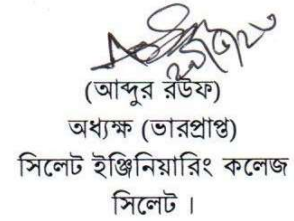 (আব্দুর রউফ)
অধ্যক্ষ (ভারপ্রাপ্ত)
সিলেট ইঞ্জিনিয়ারিং কলেজ
সিলেট ।